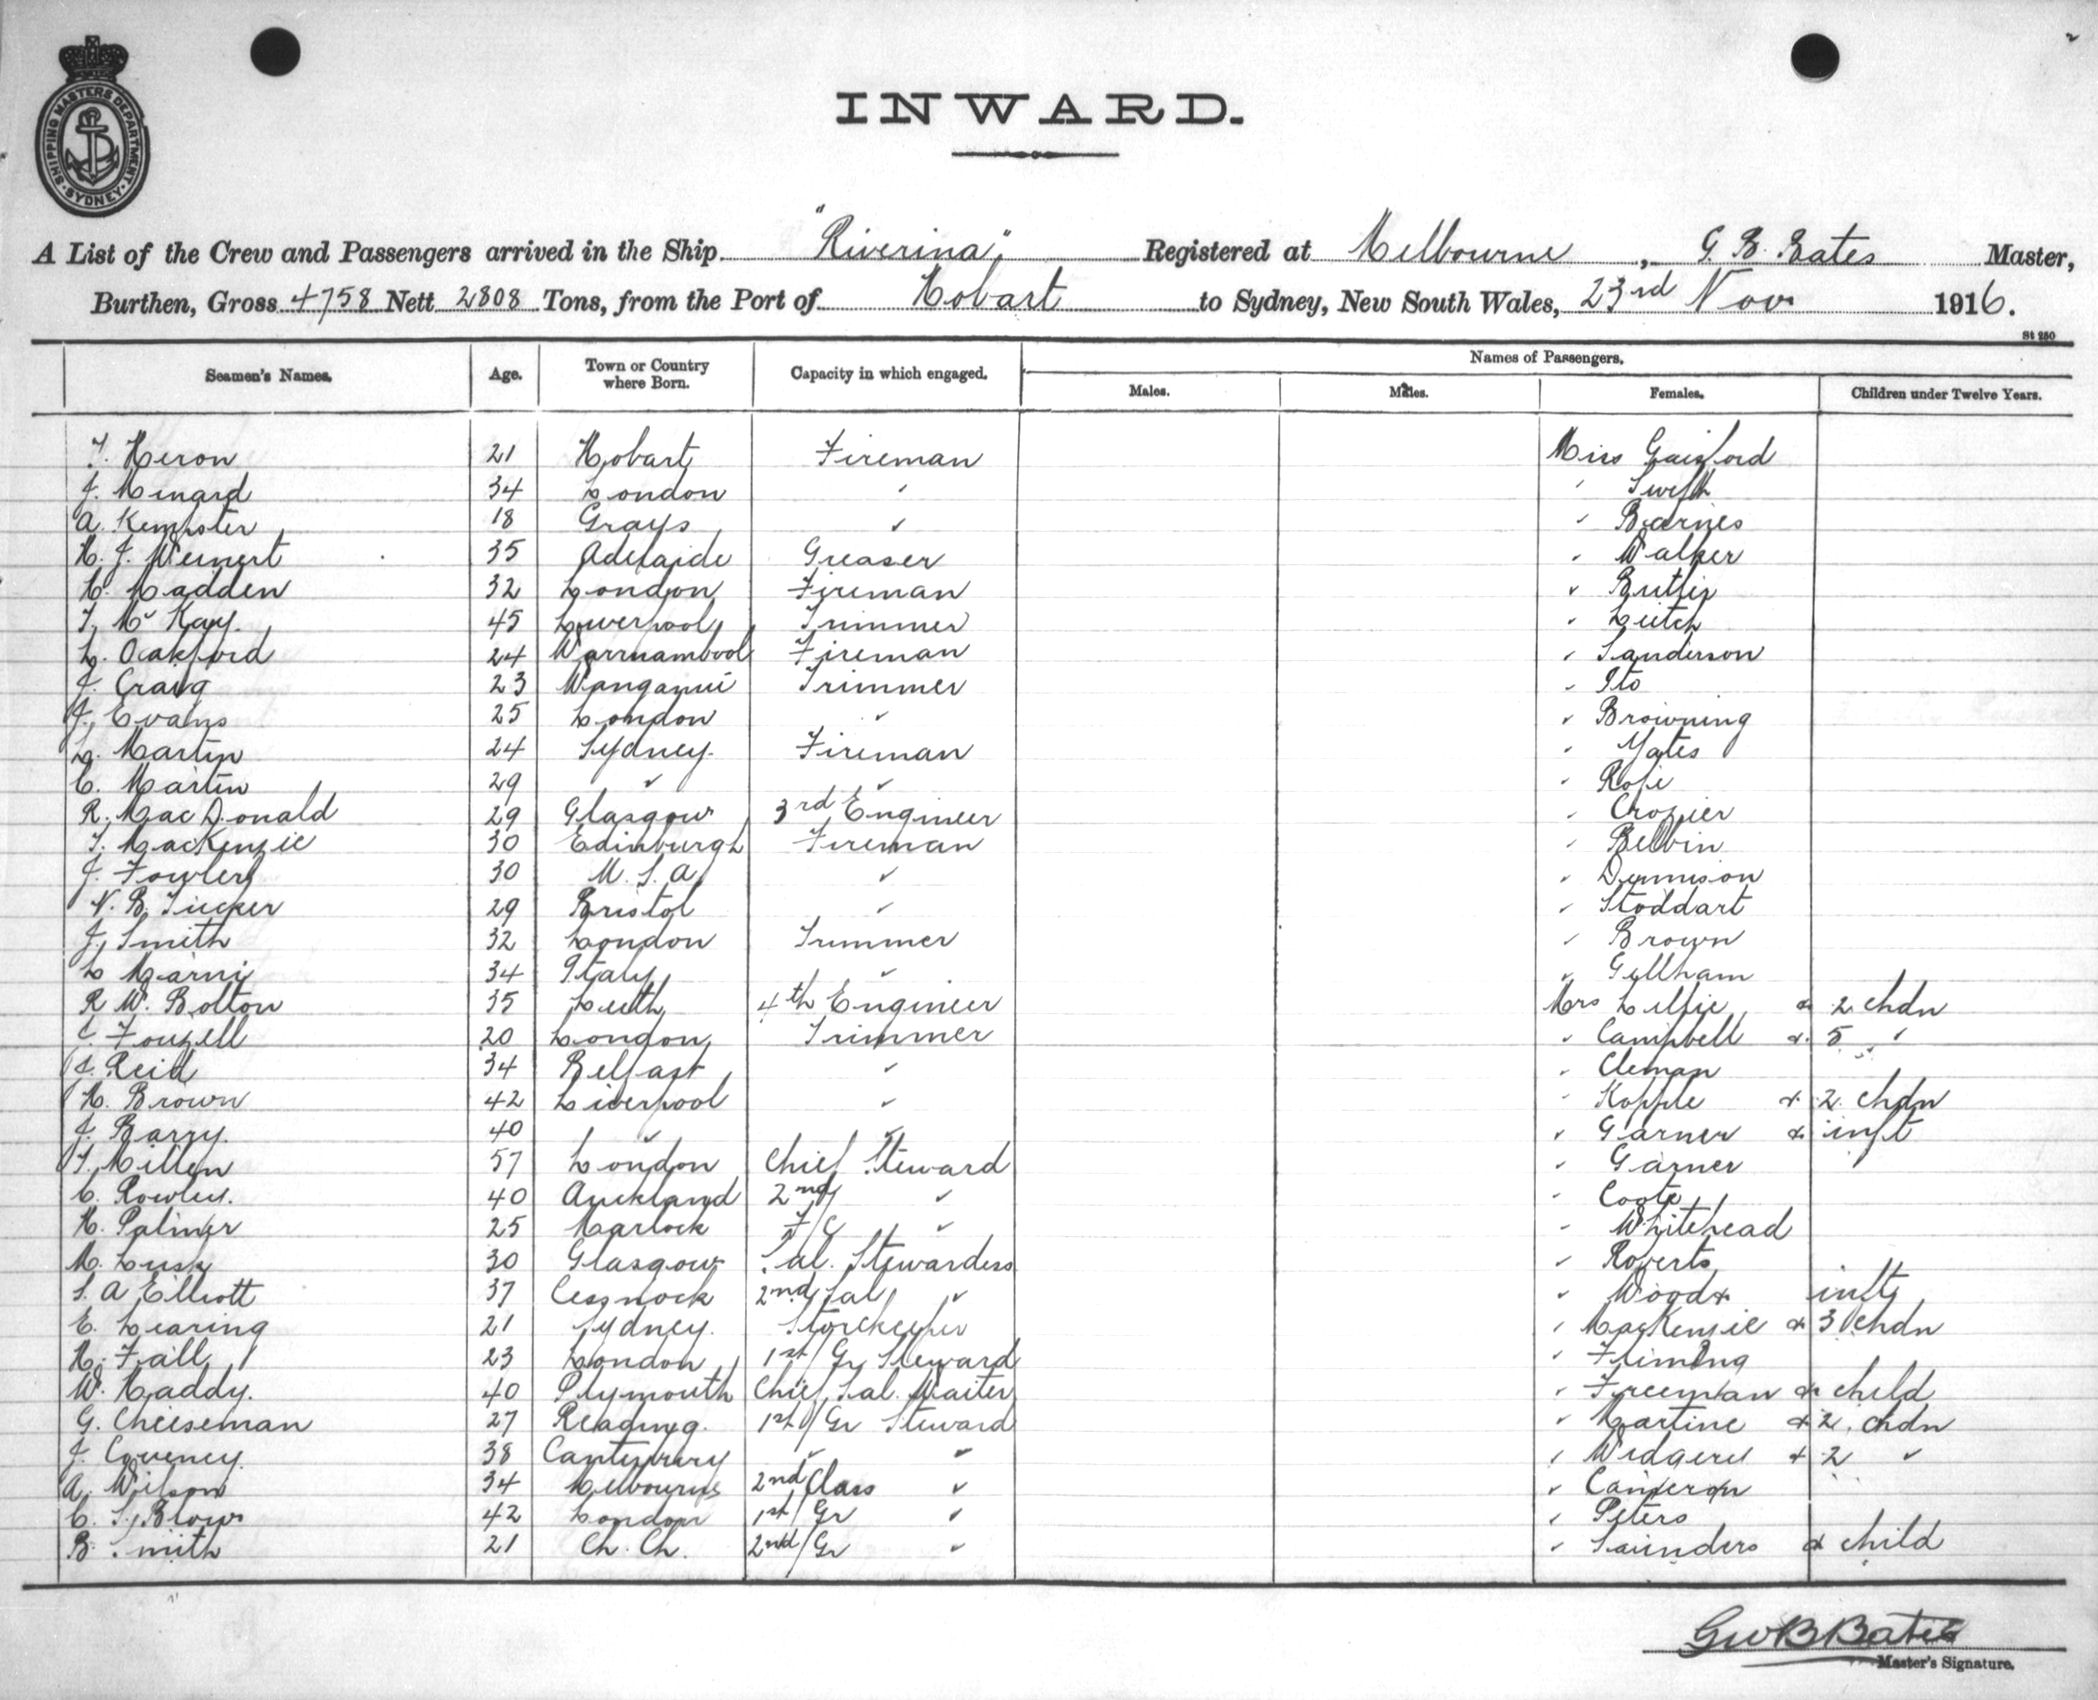 SHIPPING MASTERS DEPARTMENT · SYDNEY ·
INWARD.
A List of the Crew and Passengers arrived in the Ship "Riverina" Registered at Melbourne, G. B. Bates Master,
Burthen, Gross 4758 Nett 2808 Tons, from the Port of Hobart to Sydney, New South Wales, 23rd Nov 1916.
St 250
Seamen's Names. Age. Town or Country where Born. Capacity in which engaged. Names of Passengers.
Males. Males. Females. Children under Twelve Years.
T. Heron 21 Hobart Fireman Miss Gaisford
J. Minard 34 London " " Swift
A. Kempster 18 Grays " " Barnes
H. J. Weinert 35 Adelaide Greaser " Walker
C. Madden 32 London Fireman " Butler
T. McKay. 45 Liverpool Trimmer " Leitch
L. Oakford 24 Warrnambool Fireman " Sanderson
J. Craig 23 Wanganui Trimmer " Ito
J. Evans 25 London " " Browning
L. Martin 24 Sydney. Fireman " Yates
C. Martin 29 " " "
R. MacDonald 29 Glasgow 3rd Engineer " Crozier
T. MacKenzie 30 Edinburgh Fireman " Belbin
J. Fowler 30 U.S.A. " " Dennison
N. B. Tucker 29 Bristol " " Stoddart
J. Smith 32 London Trimmer " Brown
L Marni 34 Italy " " Gellham
R W. Bolton 35 Leith 4th Engineer Mrs Lillie & 2 chdn
C. 20 London Trimmer " Campbell & 5 "
J. Reid 34 Belfast " " Cleman
H. Brown 42 Liverpool " " Kopple & 2 chdn
J. Barry. 40 " " " Garner & inft
T. Millen 57 London Chief Steward " Garner
C. Rowley. 40 Auckland 2nd " " Coote
H. Palmer 25 F/C " " Whitehead
M. Lusk 30 Glasgow Sal. Stewardess " Roberts
S. A. Elliott 37 Cessnock 2nd Sal " " Wood & inft
E. Learing 21 Sydney. Storekeeper " MacKenzie & 3 chdn
H. Fall 23 London 1st/Gr Steward " Fleming
W. Maddy. 40 Plymouth Chief Sal. Waiter " Freeman & child
G. Cheeseman 27 Reading. 1st/Gr Steward " Martine & 2 chdn
J. Coveney. 38 Canterbury " " " & 2 "
A. Wilson 34 Melbourne 2nd Class " " Cameron
C. S. Blow 42 London 1st/Gr " " Peters
B. Smith 21 Ch. Ch. 2nd/Gr " " Saunders & child
Geo B Bates
Master's Signature.